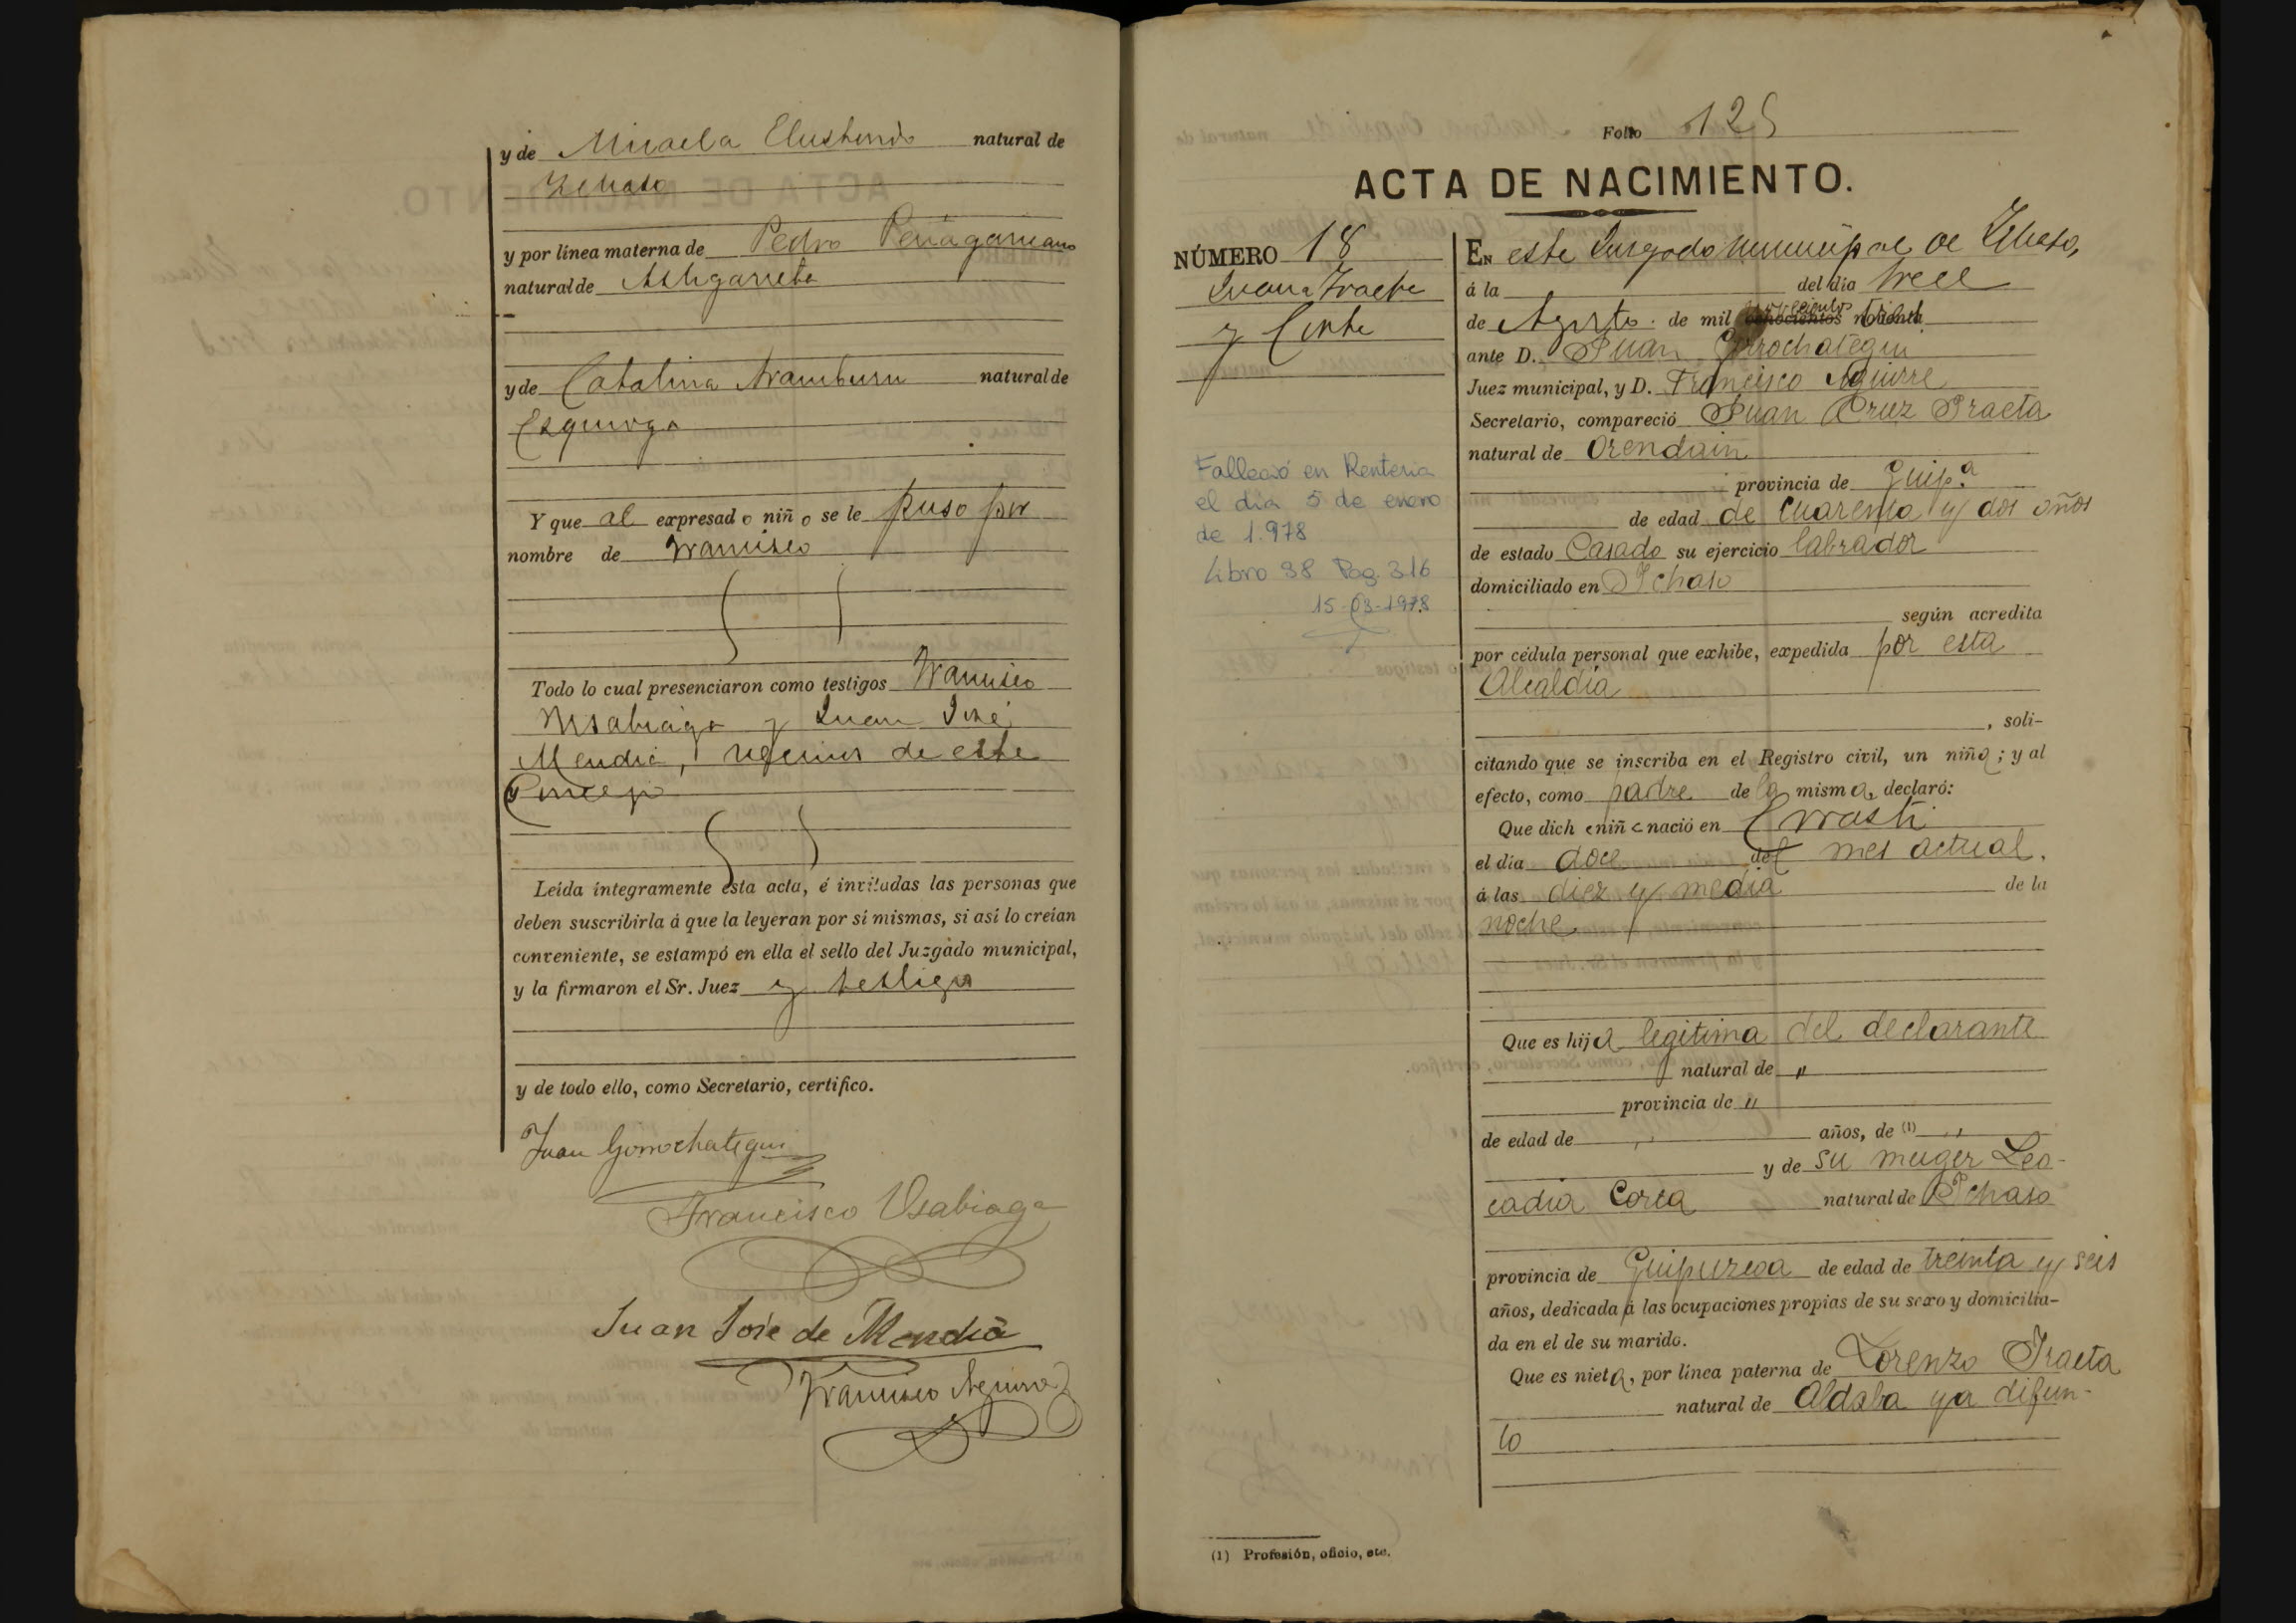 y de Micaela Elustondo natural de
Ichaso
y por línea materna de Pedro Peñagaricano
natural de Astigarreta
y de Catalina Aramburu natural de
Ezquioga
Y que al expresado niño se le puso por
nombre de Francisco
Todo lo cual presenciaron como testigos Francisco
Usabiaga y Juan José
Mendia, vecinos de este
Concejo
Leída íntegramente esta acta, é invitadas las personas que
deben suscribirla á que la leyeran por sí mismas, si así lo creían
conveniente, se estampó en ella el sello del Juzgado municipal,
y la firmaron el Sr. Juez y testigos
y de todo ello, como Secretario, certifico.
Juan Gorrochategui
Francisco Usabiaga
Juan José de Mendia
Francisco Aguirre
Folio 125
ACTA DE NACIMIENTO.
NÚMERO 18
Juana Iraeta
y Corta
Falleció en Renteria
el día 5 de enero
de 1.978
Libro 38 Pag. 316
15-03-1978
EN este Juzgado municipal de Ichaso,
á la del día trece
de Agosto de mil ochocientos noventa
ante D. Juan Gorrochategui
Juez municipal, y D. Francisco Aguirre
Secretario, compareció Juan Cruz Iraeta
natural de Orendain
provincia de Guip.a
de edad de cuarenta y dos años
de estado Casado su ejercicio labrador
domiciliado en Ichaso
según acredita
por cédula personal que exhibe, expedida por esta
Alcaldía
, soli-
citando que se inscriba en el Registro civil, un niña; y al
efecto, como padre de la misma, declaró:
Que dich niñ nació en
el día doce del mes actual.
á las diez y media de la
noche
Que es hija legitima del declarante
natural de "
provincia de "
de edad de " años, de (1) "
y de su muger Leo-
cadia Corta natural de Ichaso
provincia de Guipuzcoa de edad de treinta y seis
años, dedicada á las ocupaciones propias de su sexo y domicilia-
da en el de su marido.
Que es nieta, por línea paterna de Lorenzo Iraeta
natural de Aldaba ya difun-
to
(1) Profesión, oficio, etc.